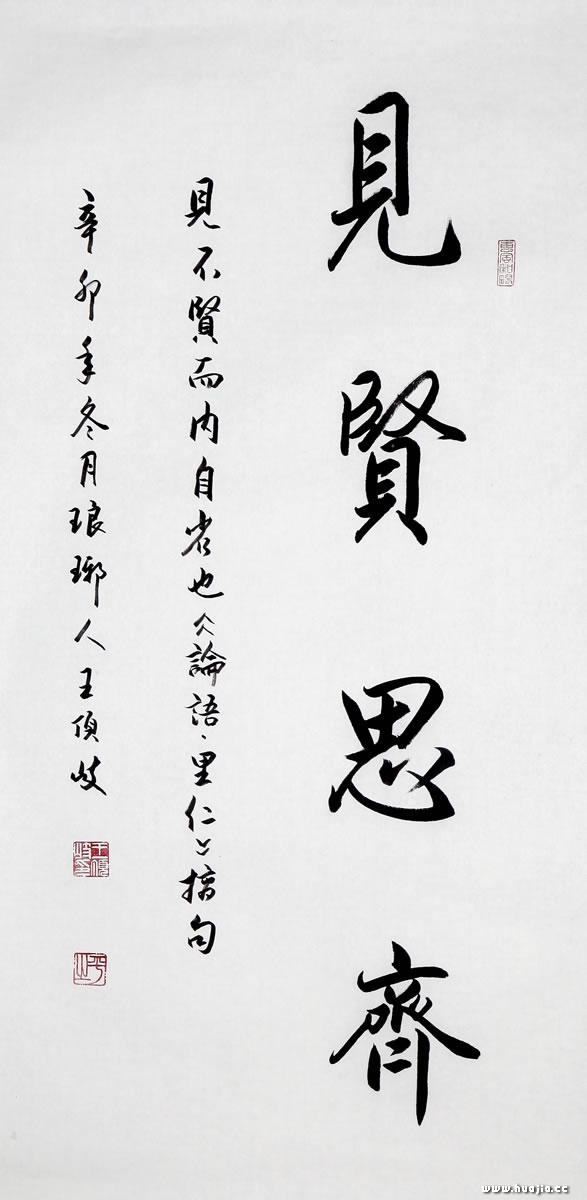 見賢思齊
見不賢而內自省也《論語·里仁》摘句
辛卯年冬月琅琊人王頂岐
www.huajia.cc